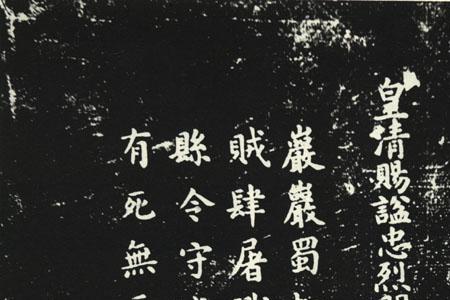 皇清賜諡忠烈
巖巖蜀
賊肆屠
縣令守
有死無